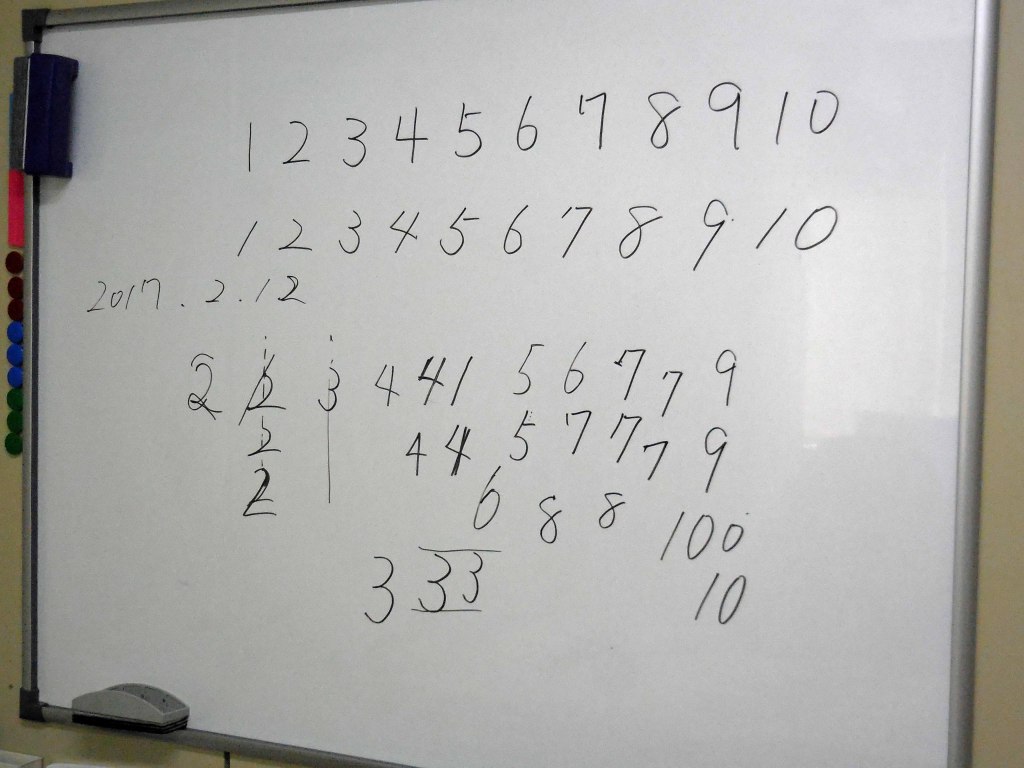 1 2 3 4 5 6 7 8 9 10
1 2 3 4 5 6 7 8 9 10
2017.2.12
2 2 3 4 4 1 5 6 7 7 9
2 4 4 5 7 7 7 9
2 6 8 8 100
3 3 3 10